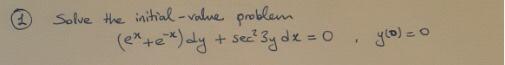 ① Solve the initial-value problem
(eˣ+e⁻ˣ)dy + sec²3y dx = 0 , y(0) = 0